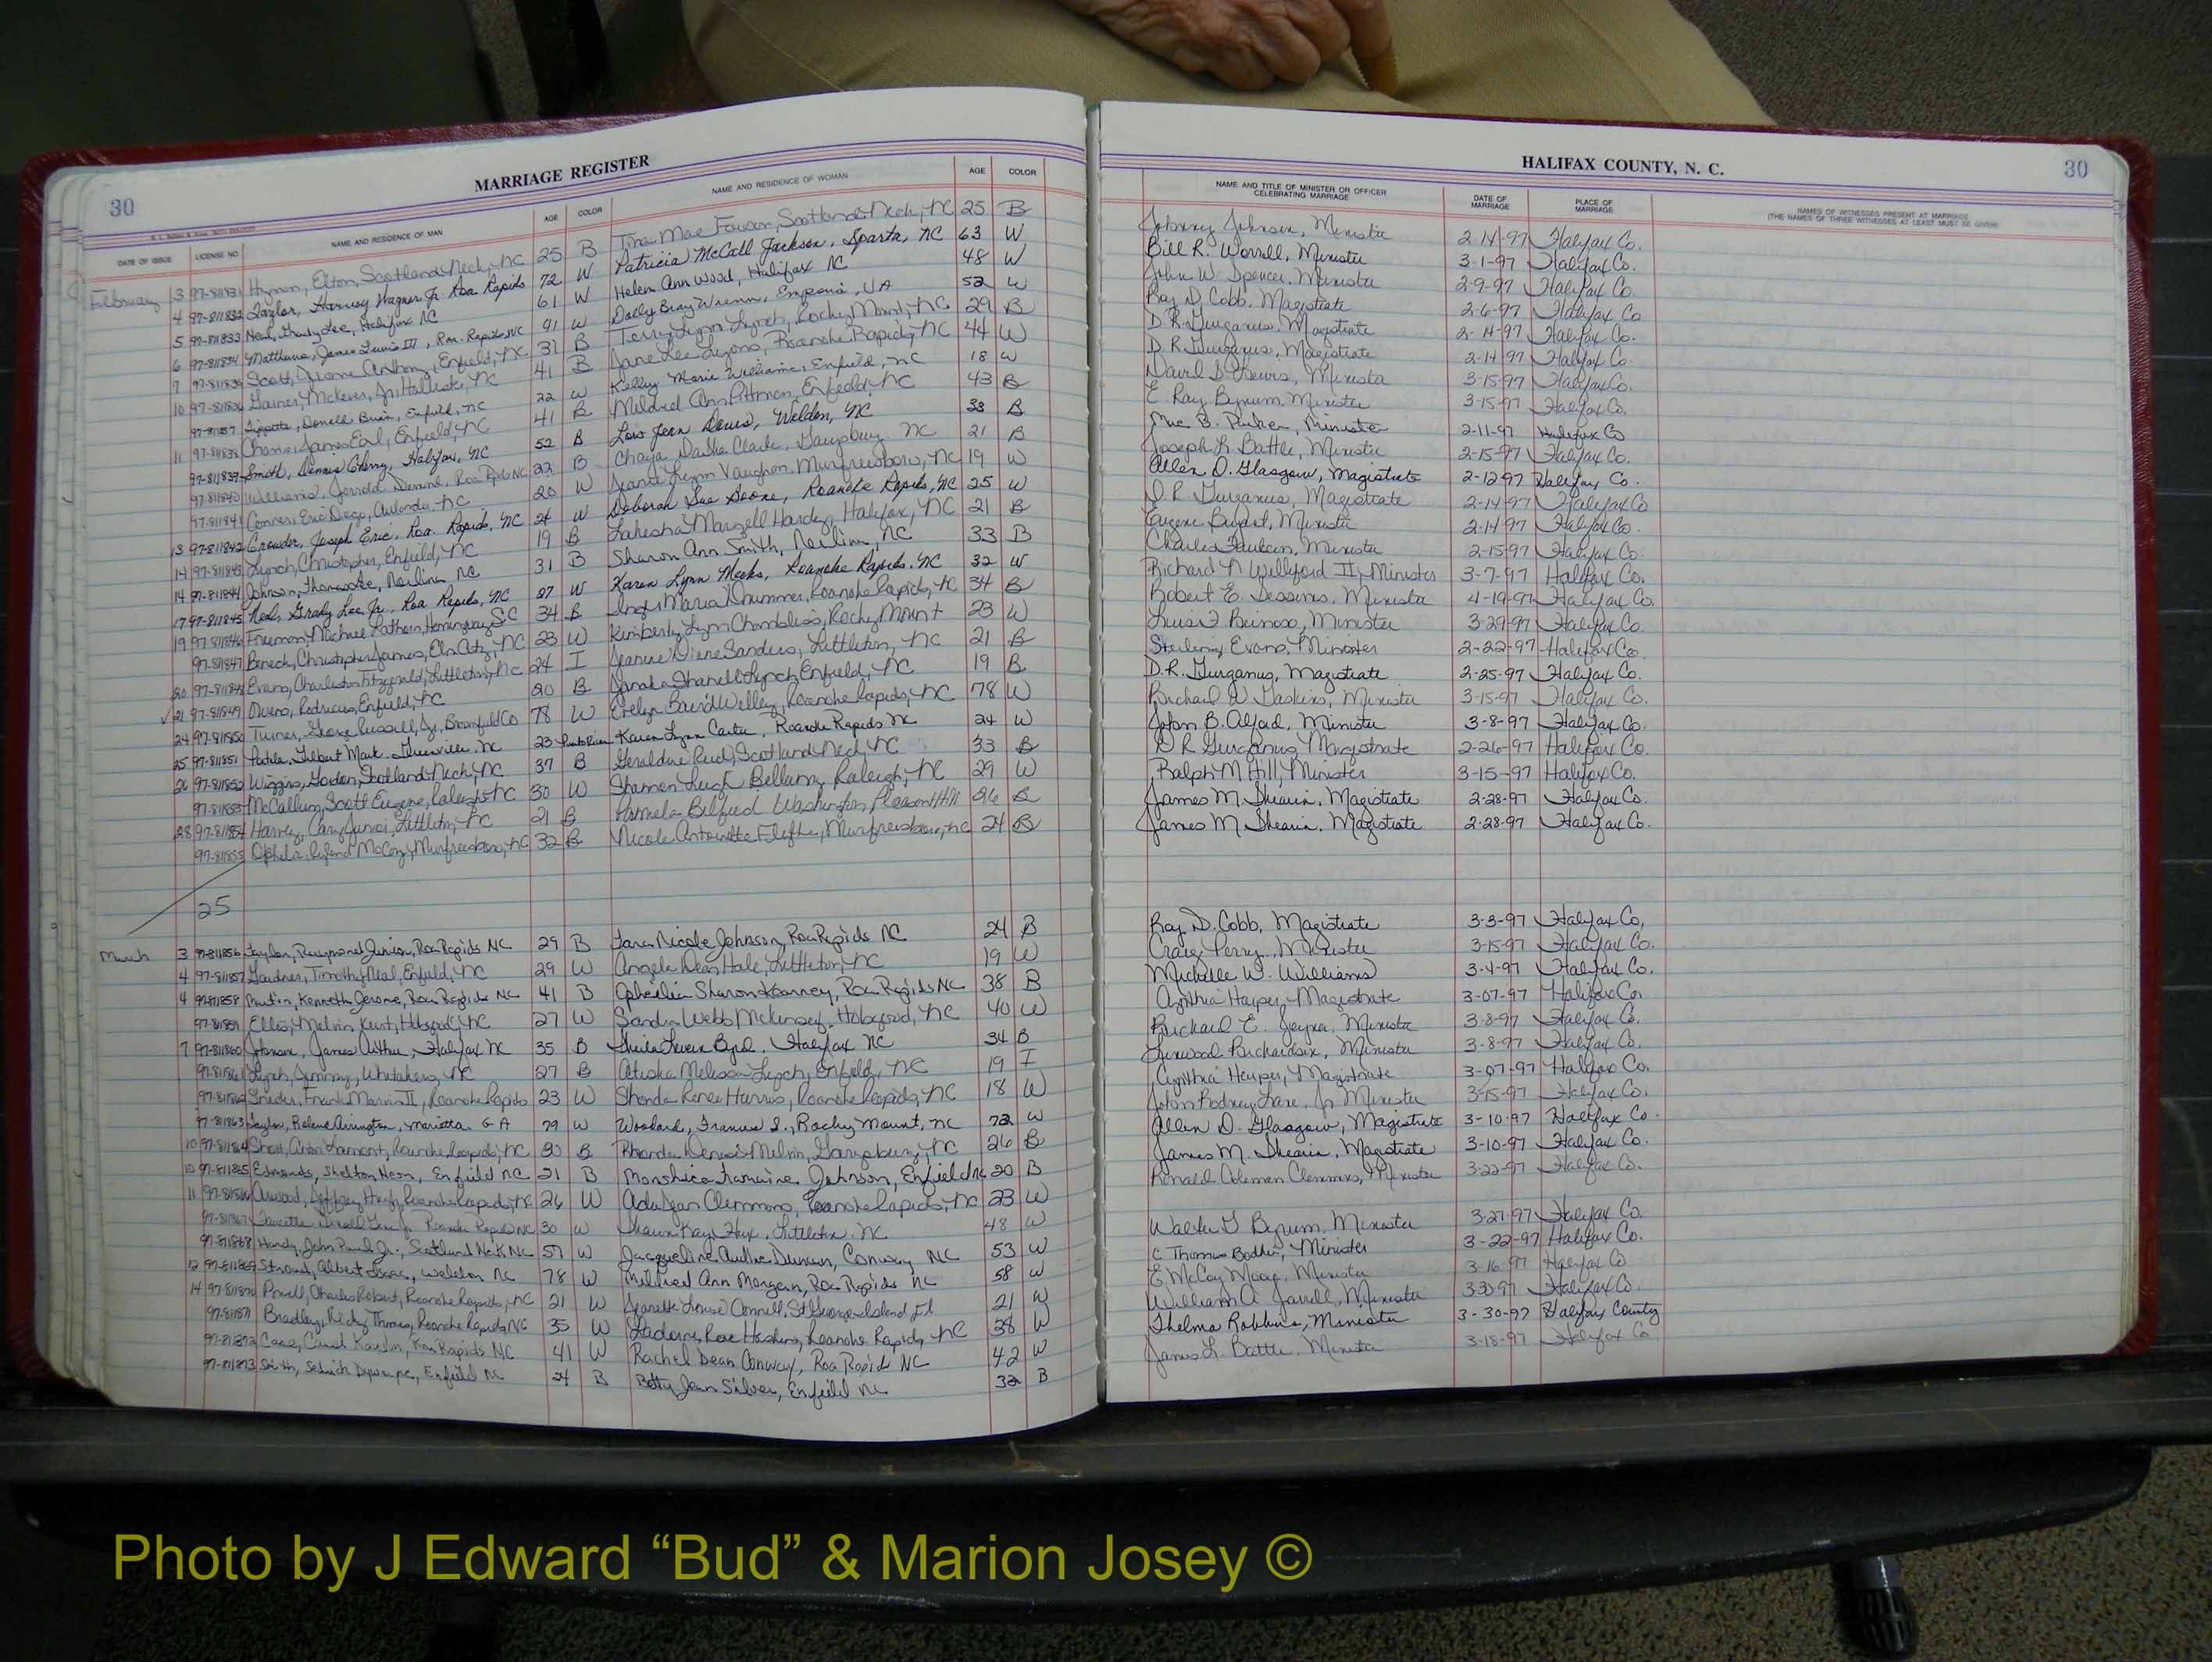 MARRIAGE REGISTER
30
DATE OF ISSUE LICENSE NO NAME AND RESIDENCE OF MAN AGE COLOR NAME AND RESIDENCE OF WOMAN AGE COLOR
February 3 97-811831 Hymon, Elton, Scotland Neck, NC 25 B Tina Mae Scotland Neck, NC 25 B
4 97-811832 Taylor, Harvey Wagner Jr. Roa Rapids 72 W Patricia McCall Jackson, Sparta, NC 63 W
5 97-811833 Neal, Grady Lee, Halifax NC 61 W Helen Ann Wood, Halifax NC 48 W
6 97-811834 Matthews, James Lewis III, Roa. Rapids, NC 91 W Dolly Bray Wrenn, Emporia, VA 52 W
7 97-811835 Scott, Anthony, Enfield, NC 31 B Terry Lynn Lynch, Rocky Mount, NC 29 B
10 97-811836 Garner, McKever, Jr, Hollister, NC 41 B Jane Lee Lyons, Roanoke Rapids, NC 44 W
97-811837 Tippette, Donell Brian, Enfield, NC 22 W Kelly Marie Williams, Enfield, NC 18 W
11 97-811838 James Earl, Enfield, NC 41 B Mildred Ann Pittman, Enfield, NC 43 B
97-811839 Smith, Dennis Cherry, Halifax, NC 52 B Lois Jean Davis, Weldon, NC 33 B
97-811840 Williams, Roa Rpds NC 22 B Chaya DaSha Clark, Garysburg NC 21 B
97-811841 Conner, Eric Aulander, NC 20 W Lynn Vaughan, Murfreesboro, NC 19 W
13 97-811842 Crowder, Joseph Eric, Roa. Rapids, NC 24 W Deborah Sue Boone, Roanoke Rapids, NC 25 W
14 97-811843 Lynch, Christopher, Enfield, NC 19 B Lakesha Hardy, Halifax, NC 21 B
14 97-811844 Johnson, Norlina NC 31 B Sharon Ann Smith, Norlina, NC 33 B
17 97-811845 Neal, Grady Lee Jr, Roa Rapids, NC 27 W Karen Lynn Meeks, Roanoke Rapids, NC 32 W
19 97-811846 Freeman, Hemingway SC 34 B Maria Roanoke Rapids, NC 34 B
97-811847 Christopher James, Elm City, NC 23 W Kimberly Lynn Chambliss, Rocky Mount 23 W
20 97-811848 Evans, Charleston Fitzgerald, Littleton, NC 24 I Jeanine Diane Sanders, Littleton, NC 21 B
21 97-811849 Owens, Rodricus, Enfield, NC 20 B Shanell Lynch, Enfield, NC 19 B
24 97-811850 Turner, George Russell, Jr, 78 W Evelyn Baird Willey, Roanoke Rapids, NC 78 W
25 97-811851 Mark Greenville NC 23 Karen Lynn Carter, Roanoke Rapids NC 24 W
26 97-811852 Wiggins, Gordon, Scotland Neck, NC 37 B Geraldine Scotland Neck NC 33 B
97-811853 McCallum, Scott Eugene, Raleigh NC 30 W Shannon Leigh Bellamy, Raleigh, NC 29 W
28 97-811854 Harvey, Cary Littleton, NC 21 B Pamela Washington, Pleasant Hill 26 B
97-811855 McCoy, Murfreesboro, NC 32 B Nicole Antoinette Murfreesboro, NC 24 B
25
March 3 97-811856 Taylor, Raymond Junior, Roa Rapids NC 29 B Tara Nicole Johnson, Roa Rapids NC 24 B
4 97-811857 Gardner, Timothy Neal, Enfield, NC 29 W Angela Dean Hale, Littleton, NC 19 W
4 97-811858 Kenneth Jerome, Roa Rapids NC 41 B Opheilia Sharon Kearney, Roa Rapids NC 38 B
97-811859 Ellis, Melvin Kurt, Hobgood, NC 27 W Sandra Webb McKinney, Hobgood, NC 40 W
7 97-811860 Johnson, James Arthur, Halifax NC 35 B Sheila Byrd, Halifax NC 34 B
97-811861 Lynch, Jimmy, Whitakers, NC 27 B Melissa Lynch, Enfield, NC 19 I
97-811862 Snider, Frank Marvin II, Roanoke Rapids 23 W Shonda Renee Harris, Roanoke Rapids, NC 18 W
97-811863 Taylor, Arrington, Marietta GA 79 W Woolard, Frances L., Rocky Mount, NC 72 W
10 97-811864 Lamont, Roanoke Rapids, NC 30 B Rhonda Denise Melvin, Garysburg, NC 26 B
10 97-811865 Edmonds, Shelton Enfield NC 21 B Johnson, Enfield NC 20 B
11 97-811866 Jeffrey Hugh, Roanoke Rapids, NC 26 W Ada Jean Clemmons, Roanoke Rapids, NC 23 W
97-811867 Roanoke Rapids NC 30 W Shawn Kay Hux, Littleton, NC 48 W
97-811868 Hardy, John Paul Jr., Scotland Neck NC 57 W Jacqueline Duncan, Conway NC 53 W
12 97-811869 Strand, Albert Isaac, Weldon NC 78 W Mildred Ann Morgan, Roa Rapids NC 58 W
14 97-811870 Powell, Charles Robert, Roanoke Rapids, NC 21 W Jeanette Louise Connell, St George Island Fl 21 W
97-811871 Bradley, Ricky Thomas, Roanoke Rapids, NC 35 W Rose Hoskins, Roanoke Rapids, NC 38 W
97-811872 Roa Rapids NC 41 W Rachel Dean Conway, Roa Rapids NC 42 W
97-811873 Smith, Enfield NC 24 B Betty Jean Silver, Enfield NC 32 B
HALIFAX COUNTY, N. C.
30
NAME AND TITLE OF MINISTER OR OFFICER CELEBRATING MARRIAGE DATE OF MARRIAGE PLACE OF MARRIAGE NAMES OF WITNESSES PRESENT AT MARRIAGE (THE NAMES OF THREE WITNESSES AT LEAST MUST BE GIVEN)
Johnny Johnson, Minister 2-14-97 Halifax Co.
Bill R. Worrell, Minister 3-1-97 Halifax Co.
John W. Spencer, Minister 2-9-97 Halifax Co.
Ray D. Cobb, Magistrate 2-6-97 Halifax Co
D. R. Gurganus, Magistrate 2-14-97 Halifax Co.
D. R. Gurganus, Magistrate 2-14-97 Halifax Co.
David Minister 3-15-97 Halifax Co.
E. Ray Bynum, Minister 3-15-97 Halifax Co.
Mac B. Parker, Minister 2-11-97 Halifax Co
Joseph L. Battle, Minister 2-15-97 Halifax Co.
Allen D. Glasgow, Magistrate 2-12-97 Halifax Co.
D. R. Gurganus, Magistrate 2-14-97 Halifax Co
Eugene Minister 2-14-97 Halifax Co.
Charles Minister 2-15-97 Halifax Co.
Richard N Williford II, Minister 3-7-97 Halifax Co.
Robert E. Sessoms, Minister 4-19-97 Halifax Co.
Luis F. Reinoso, Minister 3-29-97 Halifax Co.
Sterling Evans, Minister 2-22-97 Halifax Co.
D.R. Gurganus, Magistrate 2-25-97 Halifax Co.
Richard W. Gaskins, Minister 3-15-97 Halifax Co.
John B. Alford, Minister 3-8-97 Halifax Co.
D R Gurganus, Magistrate 2-26-97 Halifax Co.
Ralph M Hill, Minister 3-15-97 Halifax Co.
James M. Shearin, Magistrate 2-28-97 Halifax Co.
James M. Shearin, Magistrate 2-28-97 Halifax Co.
Ray D. Cobb, Magistrate 3-3-97 Halifax Co,
Craig Perry, Minister 3-15-97 Halifax Co.
Michelle W. Williams 3-4-97 Halifax Co.
Cynthia Harper, Magistrate 3-07-97 Halifax Co
Richard E. Joyner, Minister 3-8-97 Halifax Co.
Linwood Richardson, Minister 3-8-97 Halifax Co.
Cynthia Harper, Magistrate 3-07-97 Halifax Co.
John Rodney Lane, Jr Minister 3-15-97 Halifax Co.
Allen D. Glasgow, Magistrate 3-10-97 Halifax Co.
James M. Shearin, Magistrate 3-10-97 Halifax Co.
Ronald Coleman Clemmons, Minister 3-22-97 Halifax Co.
Walter G Bynum, Minister 3-27-97 Halifax Co.
C Thomas Minister 3-22-97 Halifax Co.
E McCoy Moore, Minister 3-16-97 Halifax Co
William A. Jarrell, Minister 3-30-97 Halifax Co.
Thelma Robbins, Minister 3-30-97 Halifax County
James L. Battle, Minister 3-18-97 Halifax Co
Photo by J Edward “Bud” & Marion Josey ©